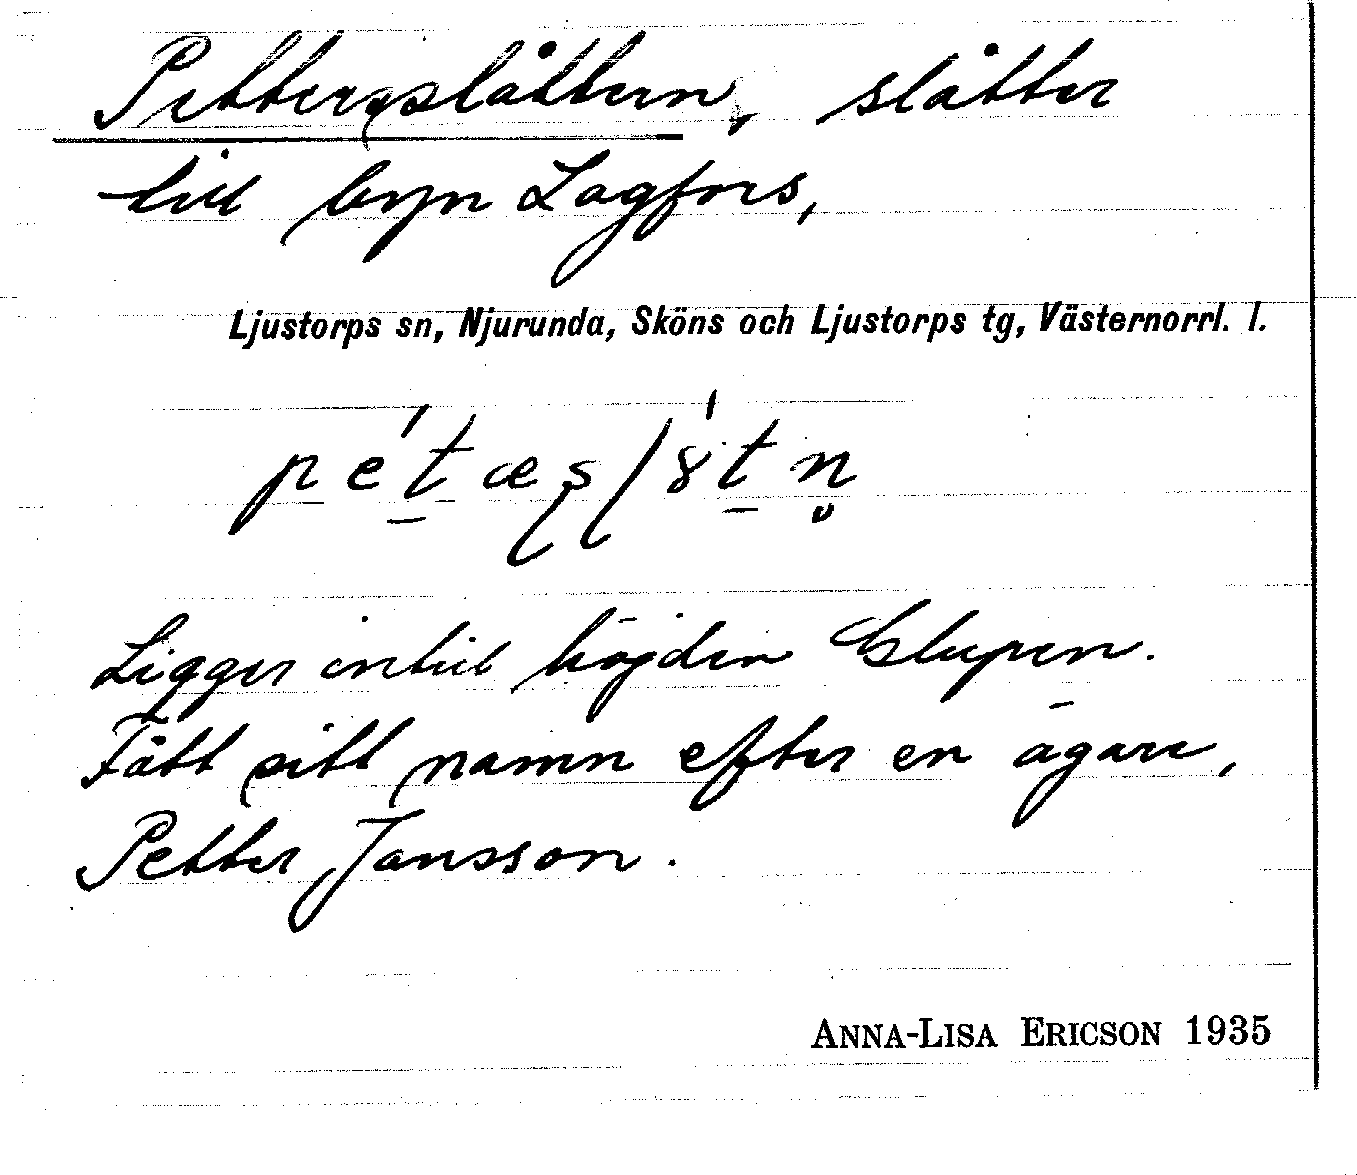 Pettersslåttern, slåtter
till byn Lagfors,
Ljustorps sn, Njurunda, Sköns och Ljustorps tg, Västernorrl. l.
Ligger intill höjden Klupen.
Fått sitt namn efter en ägare,
Petter Jansson.
ANNA-LISA ERICSON 1935